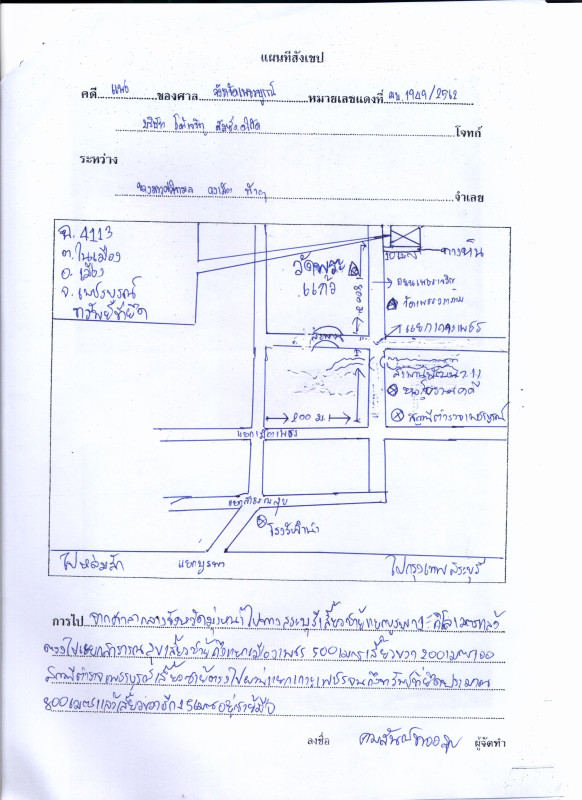 แผนที่สังเขป
คดี แพ่ง ของศาล จังหวัดเพชรบูรณ์ หมายเลขแดงที่ ผบ 1949/2562
บริษัท จำกัด โจทก์
ระหว่าง
จำเลย
ฉ. 4113
ต. ในเมือง
อ. เมือง
จ. เพชรบูรณ์
ทรัพย์ที่ยึด
วัดพระแก้ว
800 ม.
ทางหิน
ถนนเพชรเจริญ
วัดเพชรวราราม
แยกเกาะเพชร
สะพาน
200 ม.
สถานีตำรวจเพชรบูรณ์
แยกเมืองเพชร
แยกสาธารณสุข
โรงรับจำนำ
ไปหล่มสัก
แยกบูรพา
ไปกรุงเทพ สระบุรี
การไป จากศาลากลางจังหวัดมุ่งหน้าไปทางสระบุรีเลี้ยวซ้ายแยกบูรพา 1 กิโลเมตรแล้ว
ตรงไปแยกสาธารณสุขเลี้ยวซ้ายถึงแยกเมืองเพชร 500 เมตร เลี้ยวขวา 200 เมตร เจอ
สถานีตำรวจเพชรบูรณ์เลี้ยวซ้ายตรงไปผ่านแยกเกาะเพชรจนถึงทรัพย์ที่ยึดประมาณ
800 เมตร แล้วเลี้ยวขวาอีก 15 เมตรอยู่ซ้ายมือ
ลงชื่อ ผู้จัดทำ